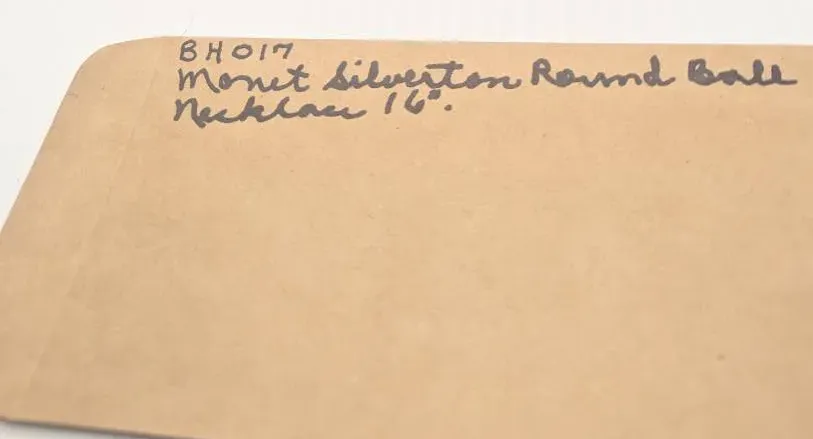 BH017
Monet Silverton Round Ball
Necklace 16".